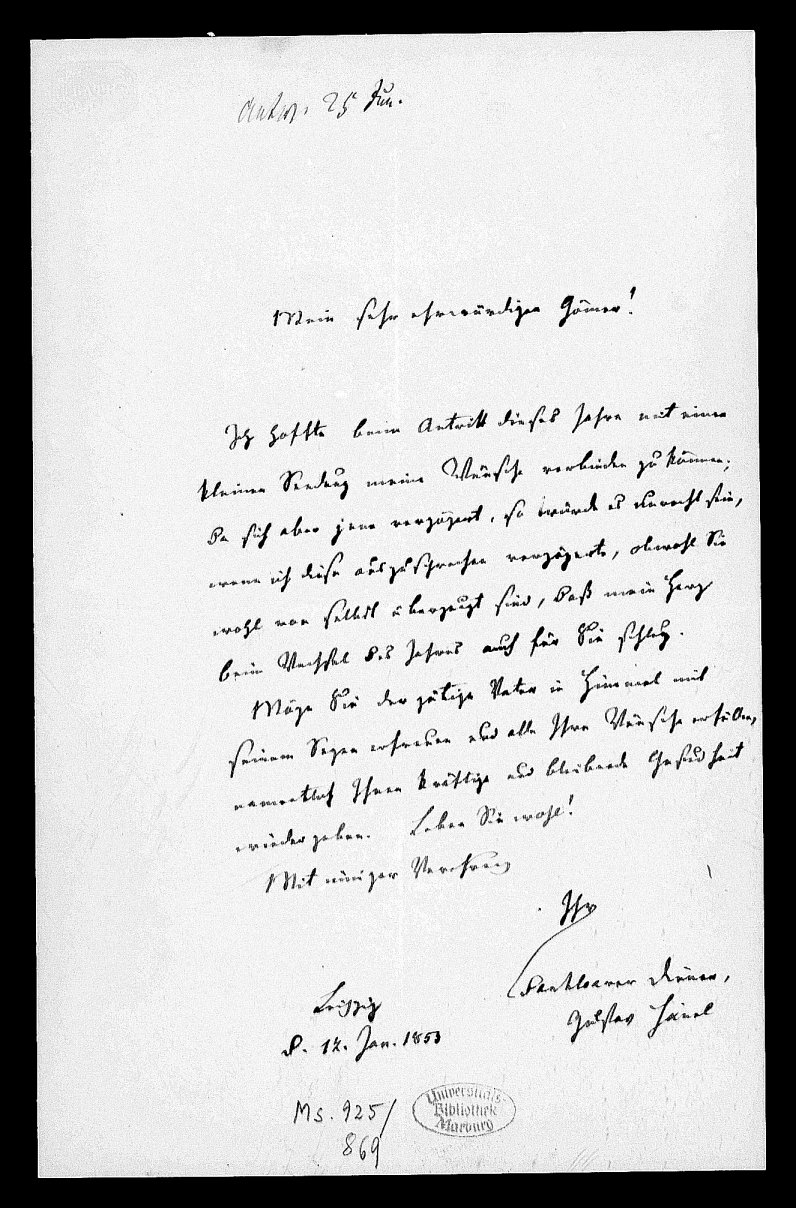 Antw. 25 Jan.
Mein sehr ehrwürdiger Gönner!
Ich hoffte beim Antritt dieses Jahrs mit einer
kleinen Sendung meine Wünsche verbinden zu können.
Da sich aber jene verzögert, so würde es unrecht sein,
wenn ich diese auszusprechen verzögerte, obwohl Sie
wohl von selbst überzeugt sind, daß mein Herz
beim Wechsel des Jahres auch für Sie schlug.
Möge Sie der gütige Vater im Himmel mit
seinem Segen erfreuen und alle Ihre Wünsche erfüllen,
namentlich Ihnen kräftige und bleibende Gesundheit
wiedergeben. Leben Sie wohl!
Mit inniger Verehrung
Ihr
dankbarer Diener,
Gustav Hänel
Leipzig
d. 12. Jan. 1853
Ms. 925/
869
Universitäts-
Bibliothek
Marburg